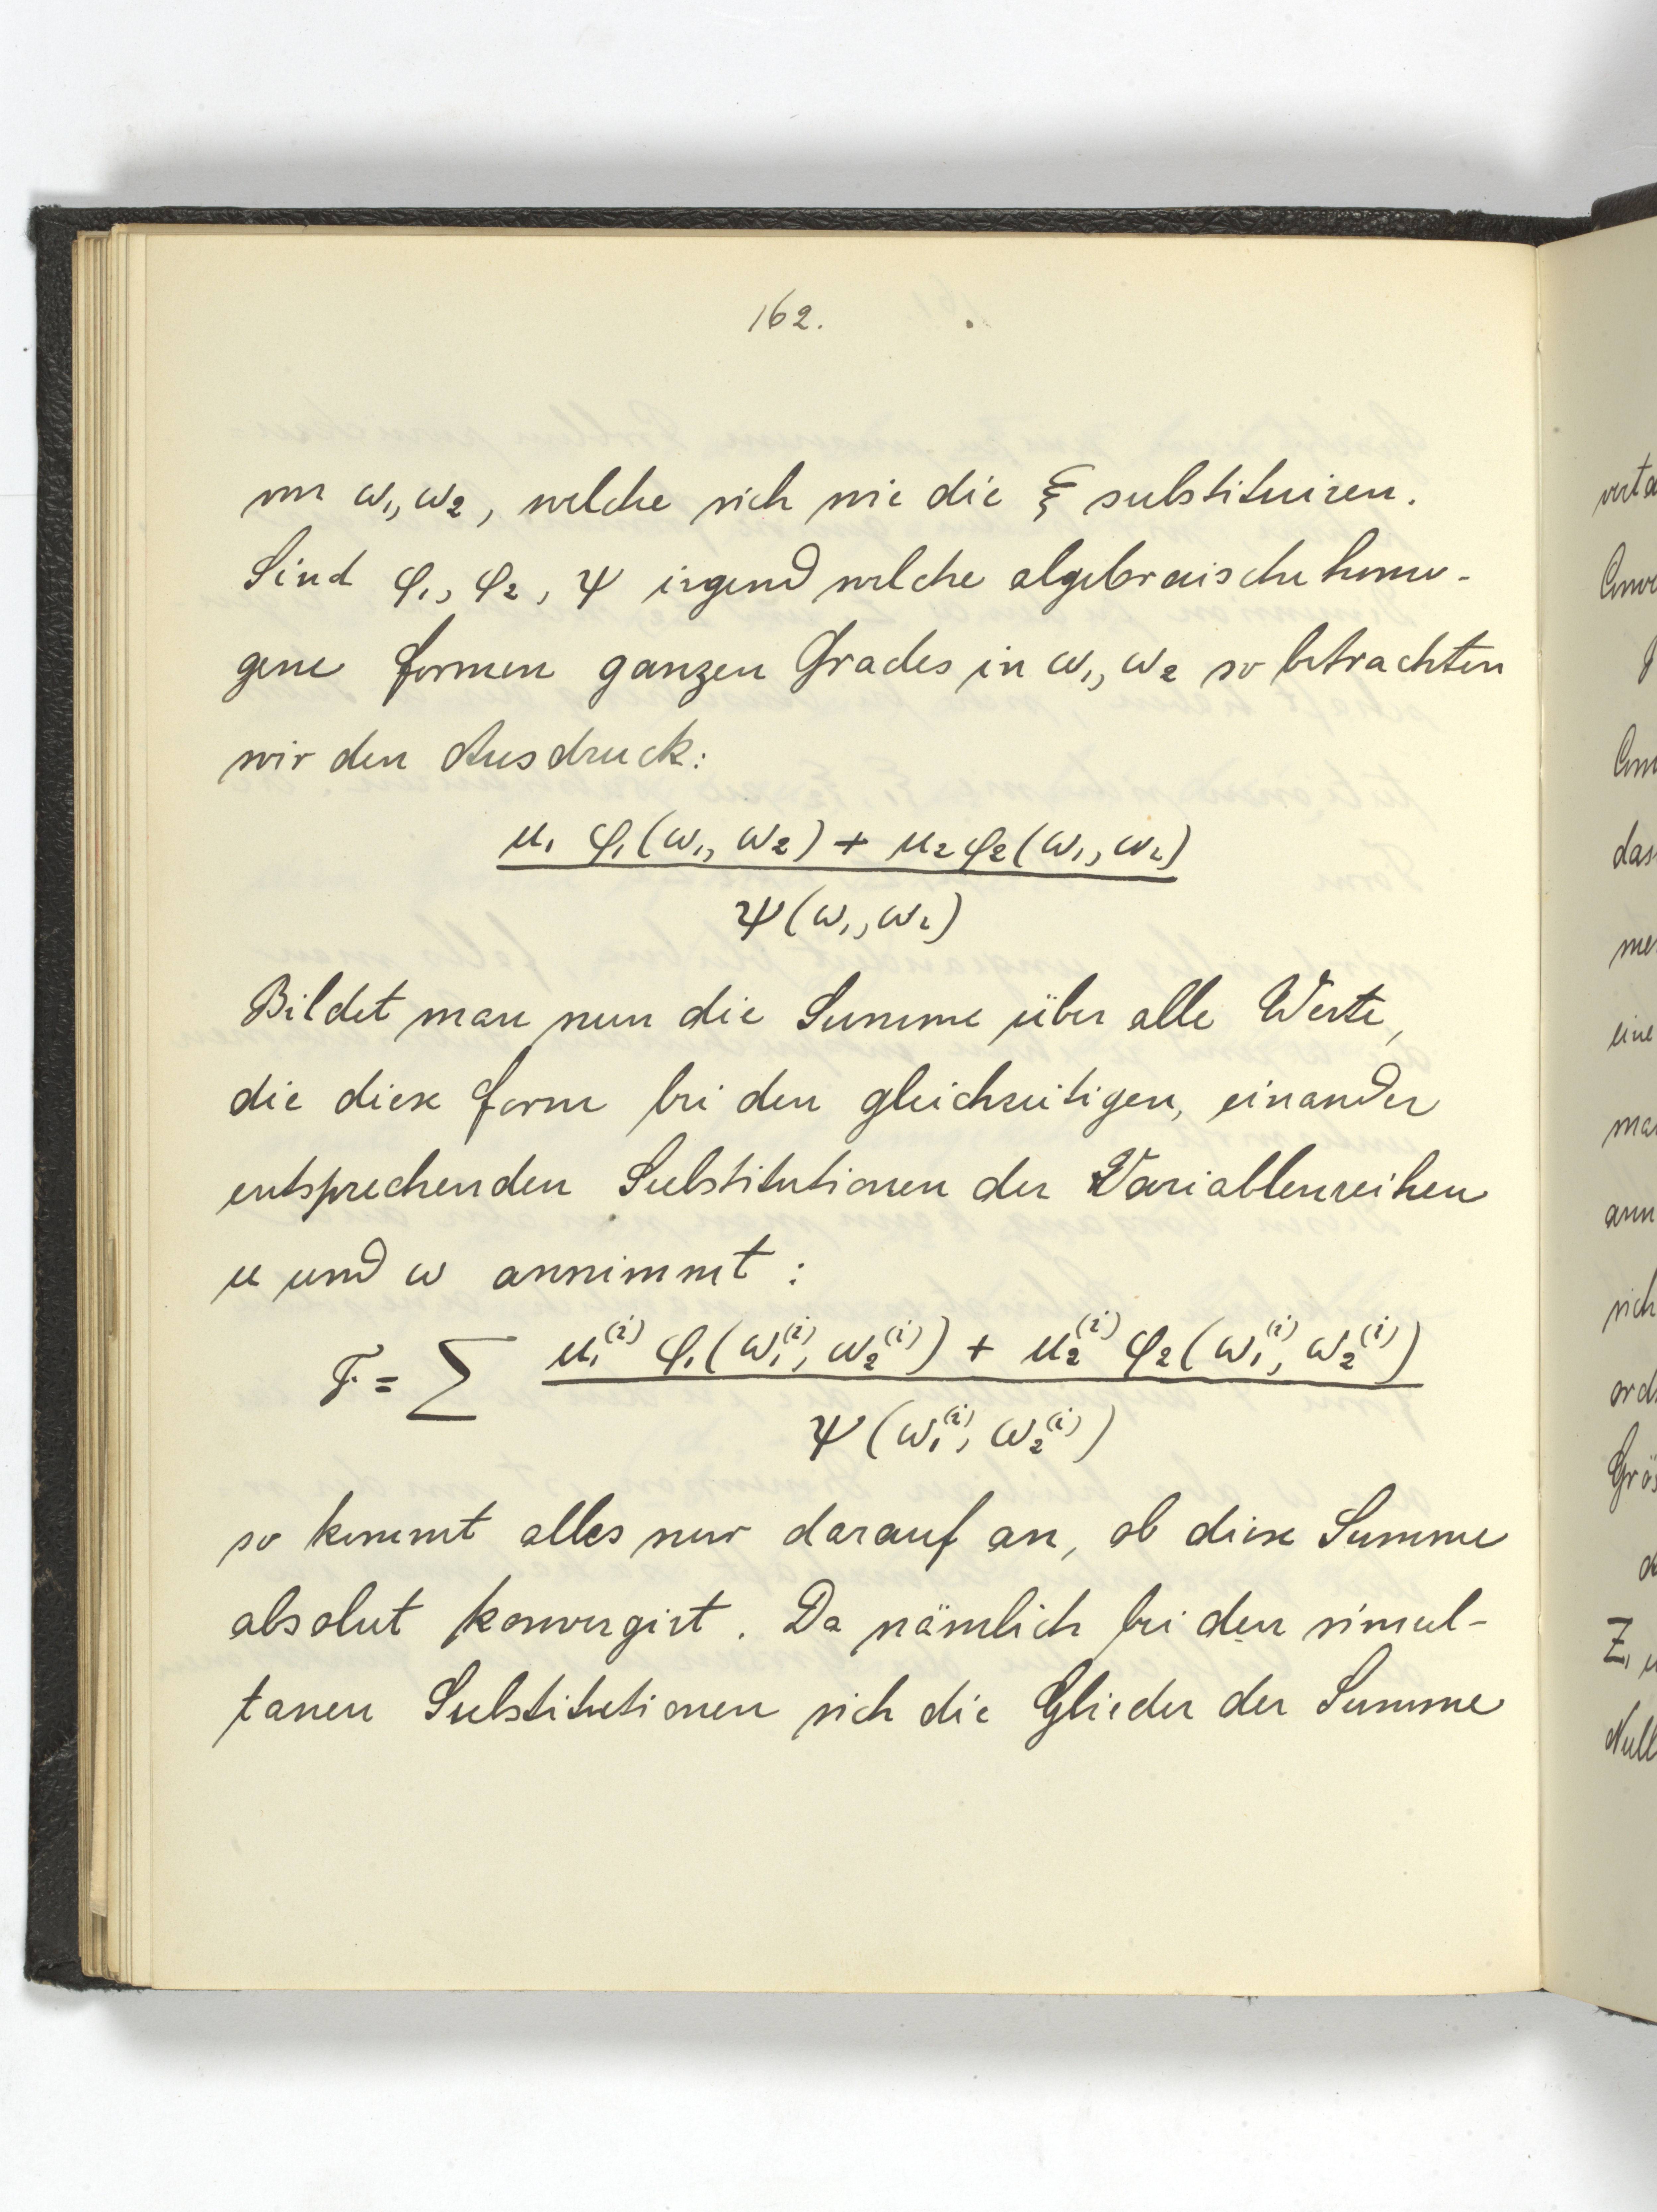 162.
von ω₁, ω₂, welche sich wie die ξ substituiren.
Sind φ₁, φ₂, ψ irgend welche algebraische homo-
gene Formen ganzen Grades in ω₁, ω₂ so betrachten
wir den Ausdruck:
u₁ φ₁(ω₁, ω₂) + u₂ φ₂(ω₁, ω₂)
ψ(ω₁, ω₂)
Bildet man nun die Summe über alle Werte,
die diese Form bei den gleichzeitigen, einander
entsprechenden Substitutionen der Variablenreihen
u und ω annimmt:
F = ∑ u₁⁽ⁱ⁾ φ₁(ω₁⁽ⁱ⁾, ω₂⁽ⁱ⁾) + u₂⁽ⁱ⁾ φ₂(ω₁⁽ⁱ⁾, ω₂⁽ⁱ⁾)
ψ(ω₁⁽ⁱ⁾, ω₂⁽ⁱ⁾)
so kommt alles nur darauf an, ob diese Summe
absolut konvergirt. Da nämlich bei den simul-
tanen Substitutionen sich die Glieder der Summe